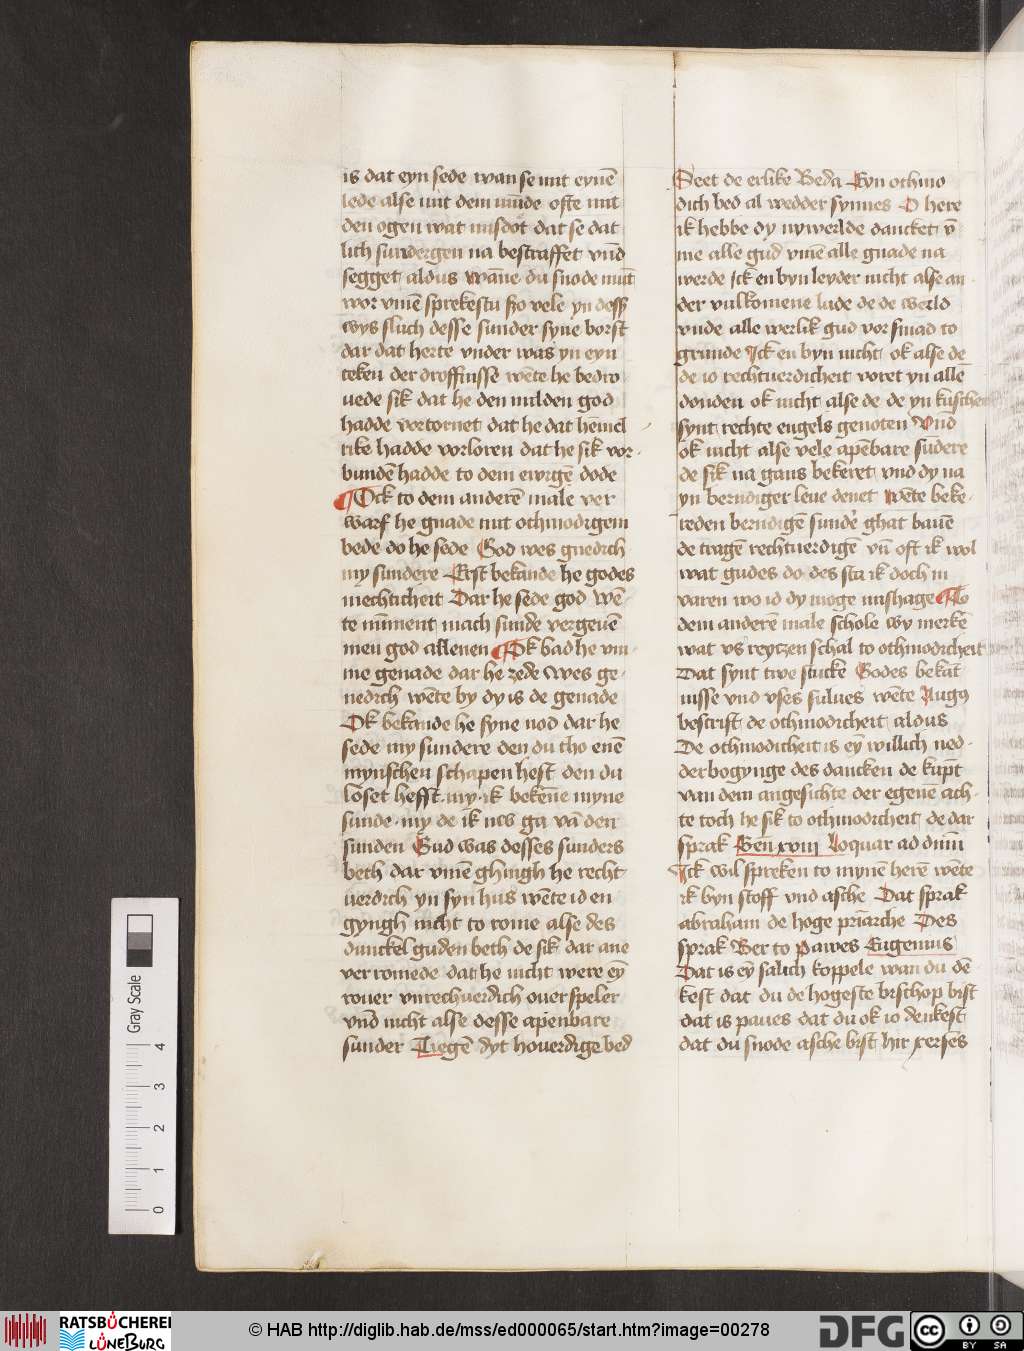 is dat eyn sede wan se mit eynē
lede alse mit dem mūde ofte mit
den ogen wat misdot dat se dat
lich sundergen na bestraffet vnd
segget aldus wāne du snode mūt
wor vmē sprekestu szo vele yn desß
wys sluch desse sunder syne borst
dar dat herte vnder was yn eyn
teken der droffnisse wēte he bedro
uede sik dat he den milden god
hadde vortornet dat he dat hēmel
rike hadde vorloren dat he sik vor
bundē hadde to dem ewigē dode
Ock to dem anderē male ver
warf he gnade mit othmodigem
bede do he sede God wes gnedich
my sundere Erst bekande he godes
mechticheit Dar he sede god wē
te nūment mach sunde vergeuē
men god allenen Ok bad he vm
me genade dar he zede wes ge
nedich wēte by dy is de genade
Ok bekande he syne nod dar he
sede my sundere den du tho enē
mynschen schapen hest den du
loset hefft my ik bekēne myne
sunde my de ik nw ga vā den
sunden Gud was desses sunders
beth dar vmē ghingh he recht
uerdich yn syn hus wēte id en
gyngh nicht to rome alse des
dunckel guden beth de sik dar ane
ver romede dat he nicht were eȳ
rouer vnrechuerdich ouerspeler
vnd nicht alse desse apenbare
sunder Tiegē dyt houerdige bed
Seet de erlike Beda Eyn othmo
dich bed al wedder synnes O here
ik hebbe dy nywerlde dancket vm̄
me alle gud vmē alle gnade na
werde Ick en byn leyder nicht alse an
der vulkomene lude de de werld
vnde alle werlik gud vor smad to
grunde Ick en byn nicht ok alse de
de io rechtuerdicheit voret yn allē
donden ok nicht alse de de yn kuscheit
synt rechte engels genoten Vnd
ok nicht alse vele apēbare sūdere
de sik na gans bekeret vnd dy na
yn berndiger leue denet wēte beke
reden berndigē sunder ghat bauē
de tragē rechtuerdigē vn̄ oft ik wol
wat gudes do des sta ik doch in
varen wo id dy moge mishage To
dem anderē male schole wy merkē
wat vs reytzen schal to othmodicheit
Dat synt twe stucke Godes bekāt
nisse vnd vses sulues wēte Augus
bescrift de othmodicheit aldus
De othmodicheit is eȳ willich ned
derbogynge des dancken de kūpt
van dem angesichte der egenē ach
te toch he sik to othmodicheit de dar
sprak Gen̄ xviij Loquar ad dnm̄
Ick wil spreken to mynē herē wēte
ik byn stoff vnd asche Dat sprak
abraham de hoge priarche Des
sprak Ber to pawes Eugenius
Dat is eȳ salich koppele wan du dē
kest dat du de hogeste bischop bist
dat is paues dat du ok io denkest
dat du snode asche bist hir xerses
Gray Scale
0 1 2 3 4
RATSBÜCHEREI
LÜNEBURG
© HAB http://diglib.hab.de/mss/ed000065/start.htm?image=00278
DFG
cc BY SA